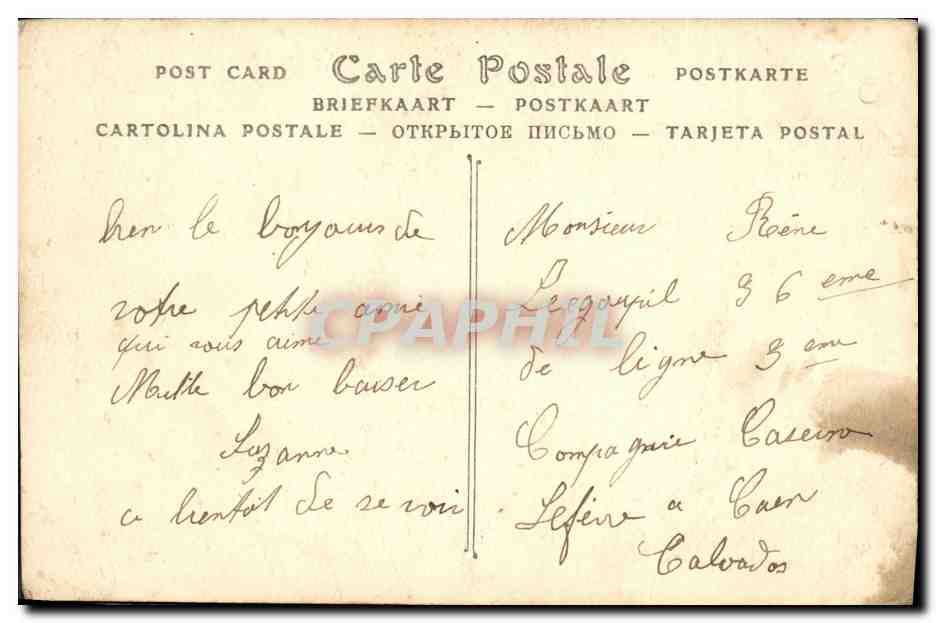 POST CARD Carte Postale POSTKARTE
BRIEFKAART — POSTKAART
CARTOLINA POSTALE — ОТКРЫТОЕ ПИСЬМО — TARJETA POSTAL
bien le bonjours de
votre petite amie
qui vous aime
Mille bon baiser
Suzanne
a bientôt de se voir
Monsieur Réne
36 eme
de ligne 3 eme
Compagnie Caserne
Lefèvre a Caen
Calvados
CPAPHIL